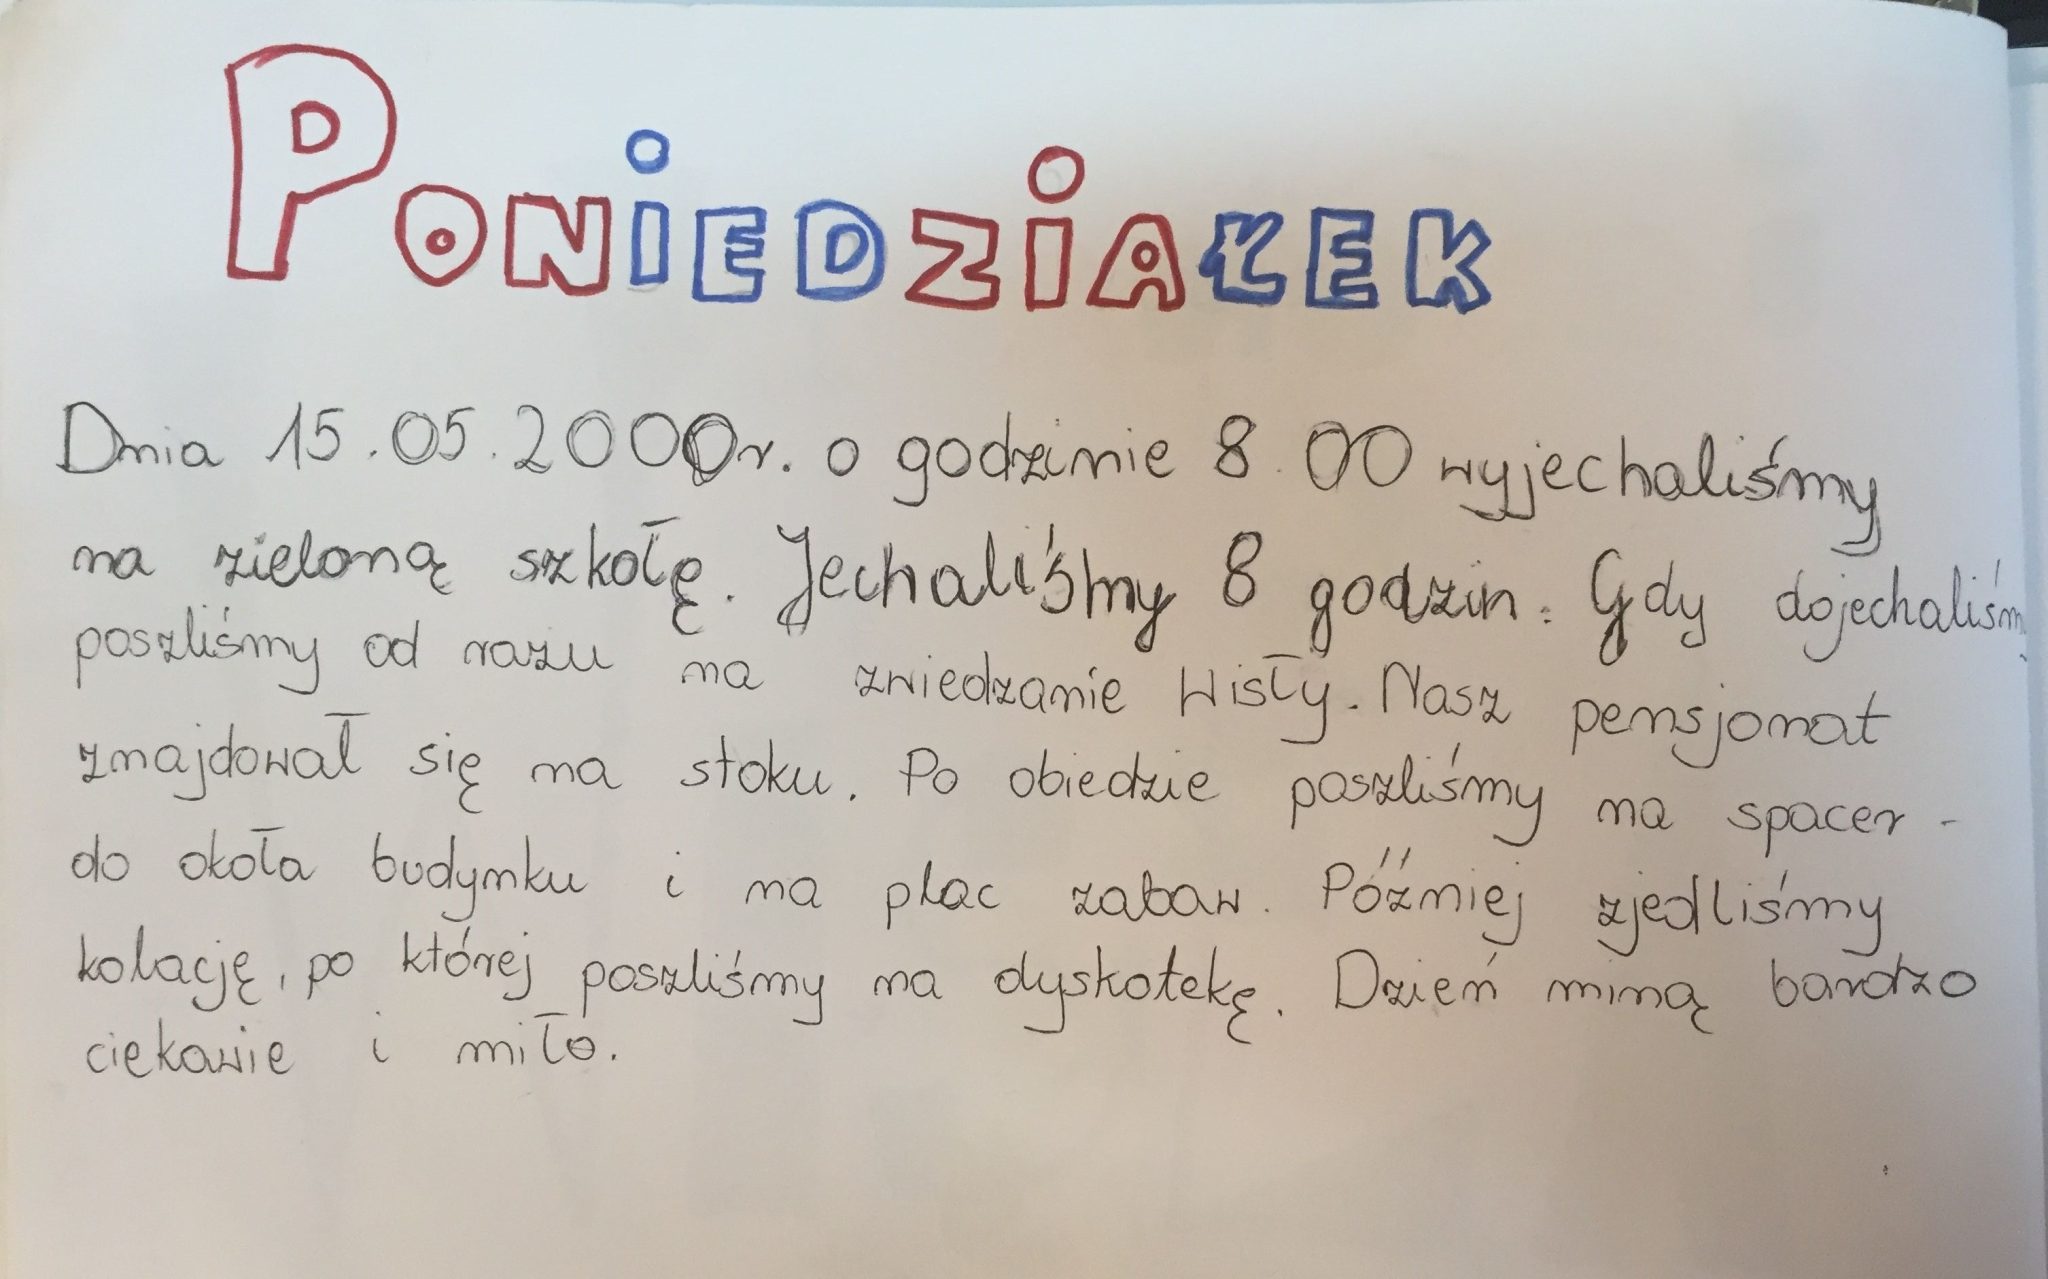 PONiEDZiAŁEK
Dnia 15.05.2000r. o godzinie 8.00 wyjechaliśmy
na zieloną szkołę. Jechaliśmy 8 godzin. Gdy dojechaliśmy
poszliśmy od razu na zwiedzanie Wisły. Nasz pensjonat
znajdował się na stoku. Po obiedzie poszliśmy na spacer -
do okoła budynku i na plac zabaw. Później zjedliśmy
kolację, po której poszliśmy na dyskotekę. Dzień miną bardzo
ciekawie i miło.